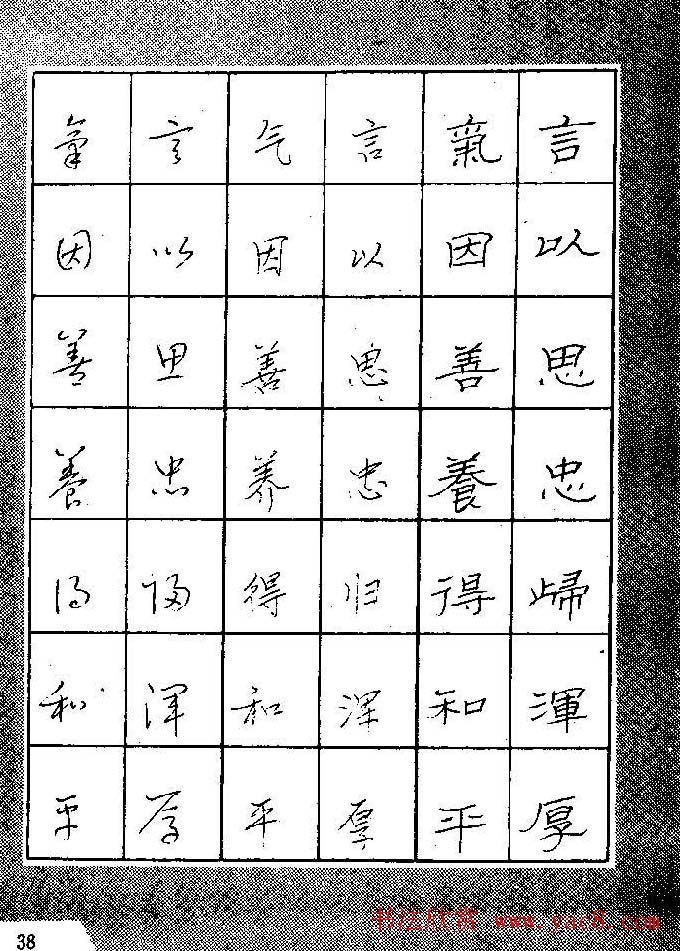 言以思忠歸渾厚
氣因善養得和平
言以思忠归浑厚
气因善养得和平
言以思忠歸渾厚
氣因善養得和平
38
书法欣赏 www.yac8.com